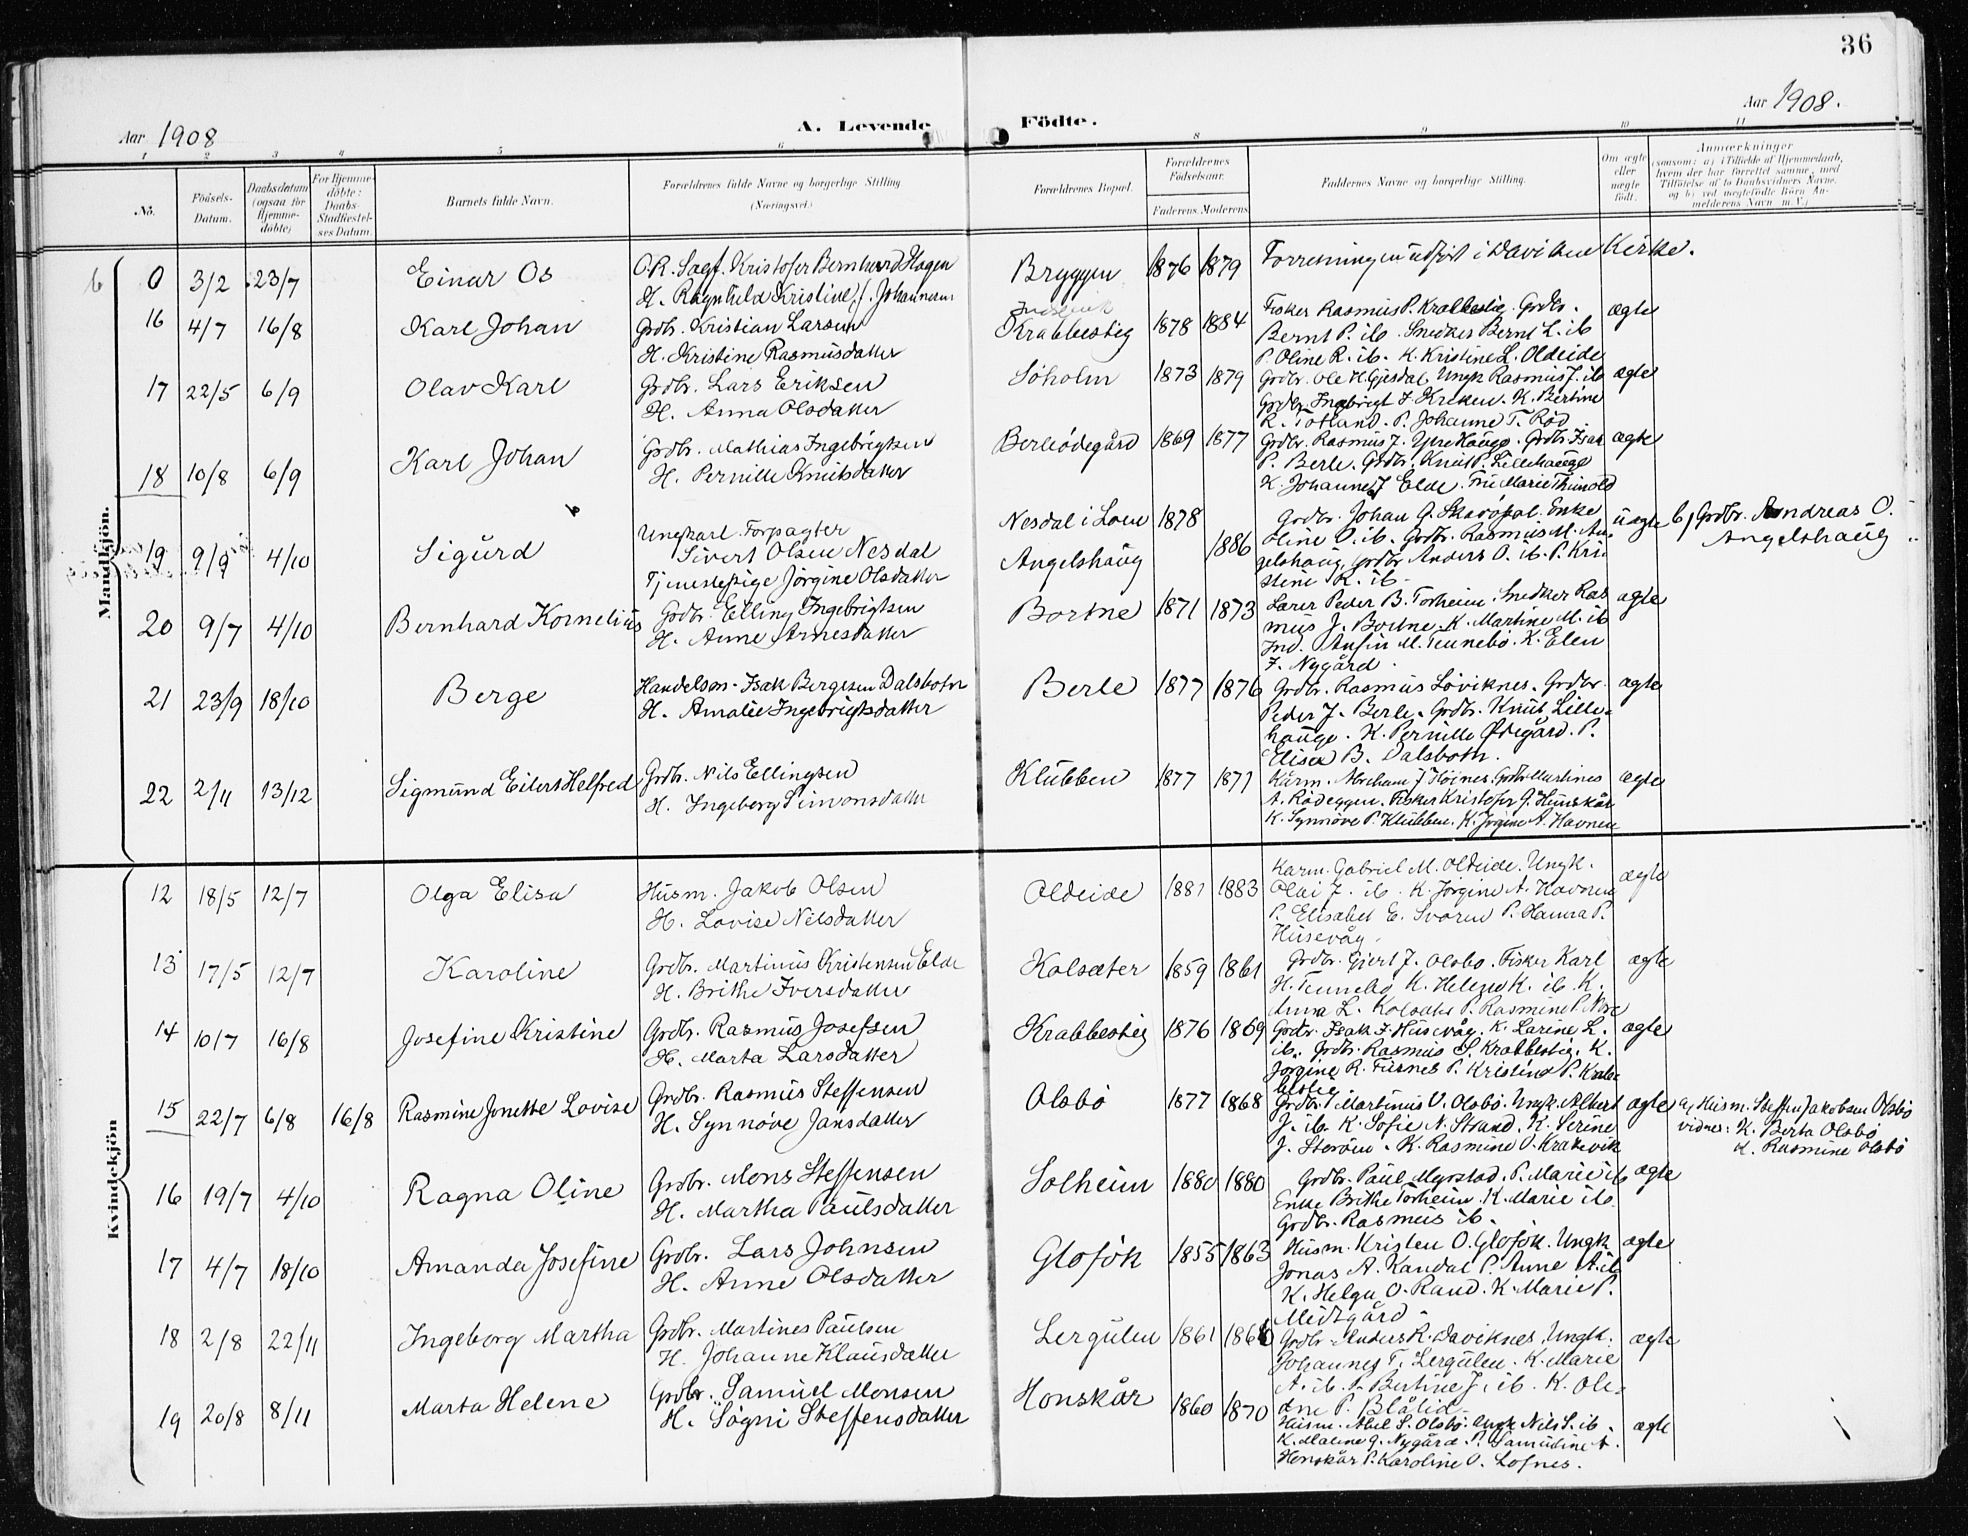 36
Aar 1908
A. Levende Födte.
Aar 1908.
1 2 3 4 5 6 8 9 10 11
No.
Födsels-
Datum.
Daabsdatum
(ogsaa for
Hjemme-
döbte)
For Hjemme-
döbte:
Daabs-
Stadfæstel-
ses Datum.
Barnets fulde Navn.
Forældrenes fulde Navne og borgerlige Stilling
(Næringsvei.)
Forældrenes Bopæl.
Forældrenes
Födselsaar.
Faderens. Moderens.
Faddernes Navne og borgerlige Stilling.
Om ægte
eller
uægte
födt.
Anmærkninger
(saasom: a) i Tilfælde af Hjemmedaab,
hvem der har forrettet samme, med
Tilföielse af to Daabsvidners Navne.
og b) ved uægtefödte Börn An-
melderens Navn m. V.)
Mandkjön.
6 0 3/2 23/7 Einar Os
O.R. Sagf. Kristofer Bernhard Hagen
H. Ragnhild Kristine Johannesen
Bryggen 1876 1879
Forretningen udført i Daviken Kirke.
16 4/7 16/8 Karl Johan
Grdbr. Kristian Larsen
H. Kristine Rasmusdatter
Krabbestig 1878 1884
Fisker Rasmus P. Krabbestig. Grdbr.
Bernt P. ib. Snedker Bernt L. ib
P. Oline R. ib. K. Kristine L. Oldeide
ægte
17 22/5 6/9 Olav Karl
Grdbr. Lars Eriksen
H. Anna Olsdatter
Söholm 1873 1879
Grdbr. Ole H. Gjesdal, Ungk Rasmus J. ib
Grdbr. Ingebrigt J. Kreken. K. Bertine
R. Totland. P. Johanne T. Rød
ægte
18 10/8 6/9 Karl Johan
Grdbr. Mathias Ingebrigtsen
H. Pernille Knutsdatter
Berleödegård 1869 1877
Grdbr. Rasmus J. Ytrehauge. Grdbr. Isak
P. Berle. Grdbr. Knut P. Lillehauge
K. Johanne J Elde. Fru Marie Thunold
ægte
19 9/9 4/10 Sigurd
Ungkarl Forpagter
Sivert Olsen Nesdal
Tjenestepige Jörgine Olsdatter
Nesdal i Loen 1878
Angelshaug 1886
Grdbr. Johan G. Skaröpol. Enke
Oline O. ib. Grdbr. Rasmus M. An-
gelshaug, grdbr Anders O. ib. P. Kri-
stine K. ib.
uægte
b, Grdbr. Andreas O.
Angelshaug
20 9/7 4/10 Bernhard Kornelius
Grdbr. Elling Ingebrigtsen
H. Anne Arnesdatter
Bortne 1871 1873
Lærer Peder B. Torheim. Snedker Ras
mus J. Bortne. K. Martine M. ib
Ind. Anfin M. Tennebö. K. Elen
J. Nygård.
ægte
21 23/9 18/10 Berge
Handelsm. Isak Bergesen Dalsbotn
H. Amalie Ingebrigtsdatter
Berle 1877 1876
Grdbr. Rasmus Löviknes. Grdbr.
Peder J. Berle. Grdbr. Knut Lille-
hauge. K. Pernille Ødegård. P.
Elisa B. Dalsbotn.
ægte
22 2/11 13/12 Sigmund Eilert Helfred
Grdbr. Nils Ellingsen
H. Ingeborg Simonsdatter
Klubben 1877 1877
Kårm. Abraham J Höines. Grdbr Martines
A. Rödeggen. Fisker Kristofer G. Hunskår
K. Synnöve P. Klubben. K. Jörgine A. Havnen
ægte
Kvindekjön
12 18/5 12/7 Olga Elisa
Husm. Jakob Olsen
H. Lovise Nilsdatter
Oldeide 1881 1883
Karm. Gabriel M. Oldeide. Ungk.
Olai J. ib. K. Jörgine A. Havnen
P. Elisabet E. Svoren P. Hanna P.
Husevåg.
ægte
13 17/5 12/7 Karoline
Grdbr. Martinus Kristensen Elde
H. Brithe Iversdatter
Kolsæter 1859 1861
Grdbr. Gjert J. Olsbö. Fisker Karl
H. Tennebö K. Helene K. ib K.
Anna L. Kolsæter P. Rasmine P. Nore
ægte
14 10/7 16/8 Josefine Kristine
Grdbr. Rasmus Josefsen
H. Marta Larsdatter
Krabbestig 1876 1869
Grdbr. Isak J. Husevåg. K. Larine L.
ib. Grdbr. Rasmus S. Krabbestig. K.
Jörgine R. Tusnes P. Kristine P. Krab-
bestig
ægte
15 22/7 6/8 16/8 Rasmine Jonette Lovise
Grdbr. Rasmus Steffensen
H. Synnöve Jansdatter
Olsbö 1877 1868
Grdbr. Martinus V. Olsbö. Ungk. Albert
J. ib K. Sofie N. Strand. K. Perine
J. Storöen. K. Rasmine O. Krakevik
ægte
a, Husm. Steffen Jakobsen Olsbö
vidner: K. Berta Olsbö
K. Rasmine Olsbö
16 19/7 4/10 Ragna Oline
Grdbr. Mons Steffensen
H. Martha Paulsdatter
Solheim 1880 1880
Grdbr. Paul Myrstad. P. Marie ib
Enke Brithe Torheim. K. Marie ib.
Grdbr. Rasmus ib.
ægte
17 4/7 18/10 Amanda Josefine
Grdbr. Lars Johnsen
H. Anne Olsdatter
Glofök 1855 1863
Husm. Kristen O. Glofök. Ungk
Jonas A. Kandal P. Anne A. ib
K. Helga O. Rand. K. Marie P.
Midtgård.
ægte
18 2/8 22/11 Ingeborg Martha
Grdbr. Martines Paulsen
H. Johanne Klausdatter
Lergulen 1861 1866
Grdbr. Anders R. Daviknes, Ungk.
Johannes T. Lergulen. K. Marie
A. ib. P. Bertine J. ib. K. Ole-
dne P. Blålid.
ægte
19 20/8 8/11 Marta Helene
Grdbr. Samuel Monsen
H. Sögni Steffensdatter
Honskår 1860 1870
Husm. Abel S. Olsbö. Ungk Nils S. ib.
K. Maline G. Nygård. P. Samueline S.
Honskår P. Karoline O. Lofnes.
ægte